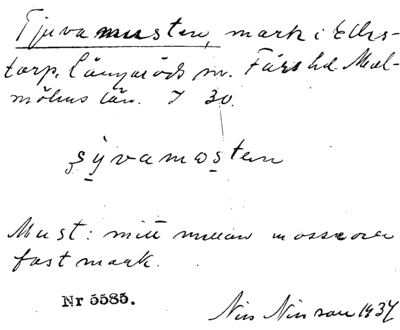 Tjuvamusten, mark i Ells-
torp, Långaröds sn. Färs hd. Mal-
möhus län. J 30.
ʂyvamostən
Must: mitt mellan mosse och
fast mark.
Nr 5585.
Nils Nilsson 1934